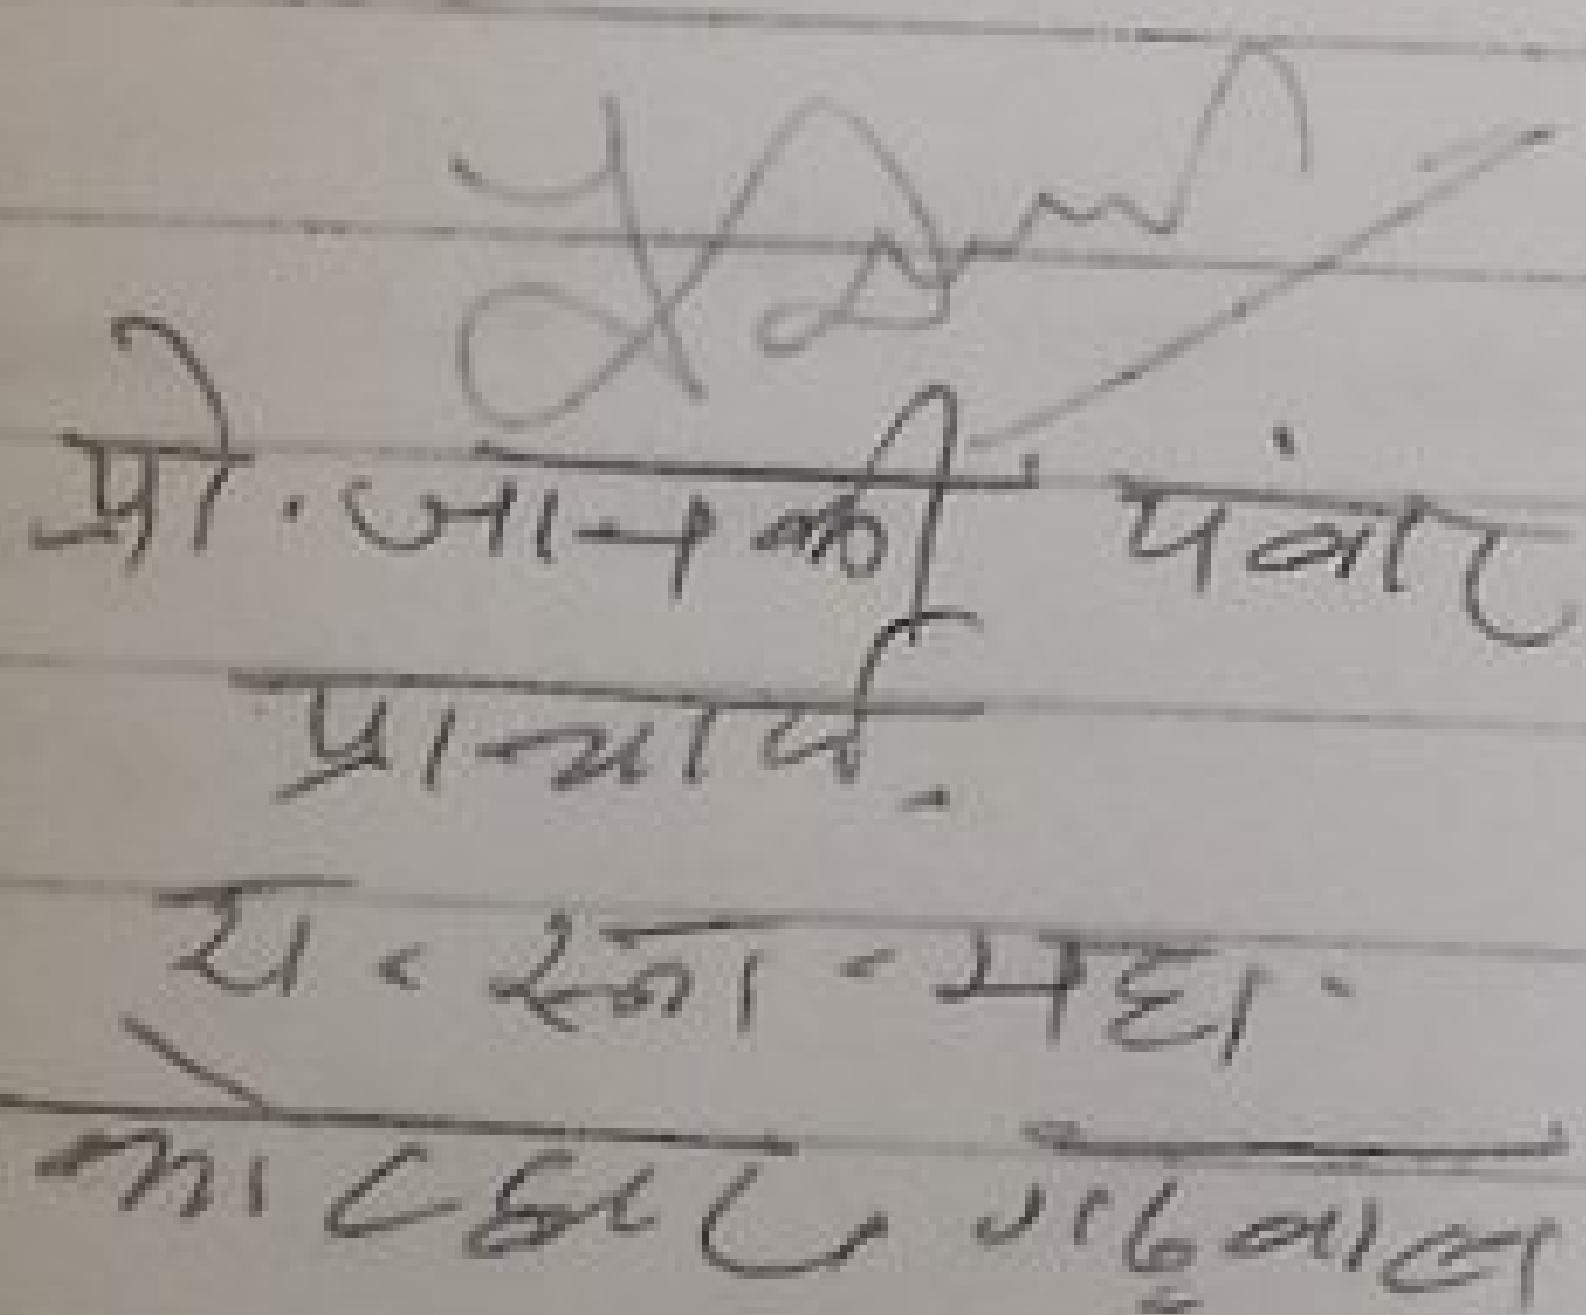 प्रो. जानकी पंवार
प्राचार्य.
रा. स्ना. महा.
कोटद्वार गढ़वाल